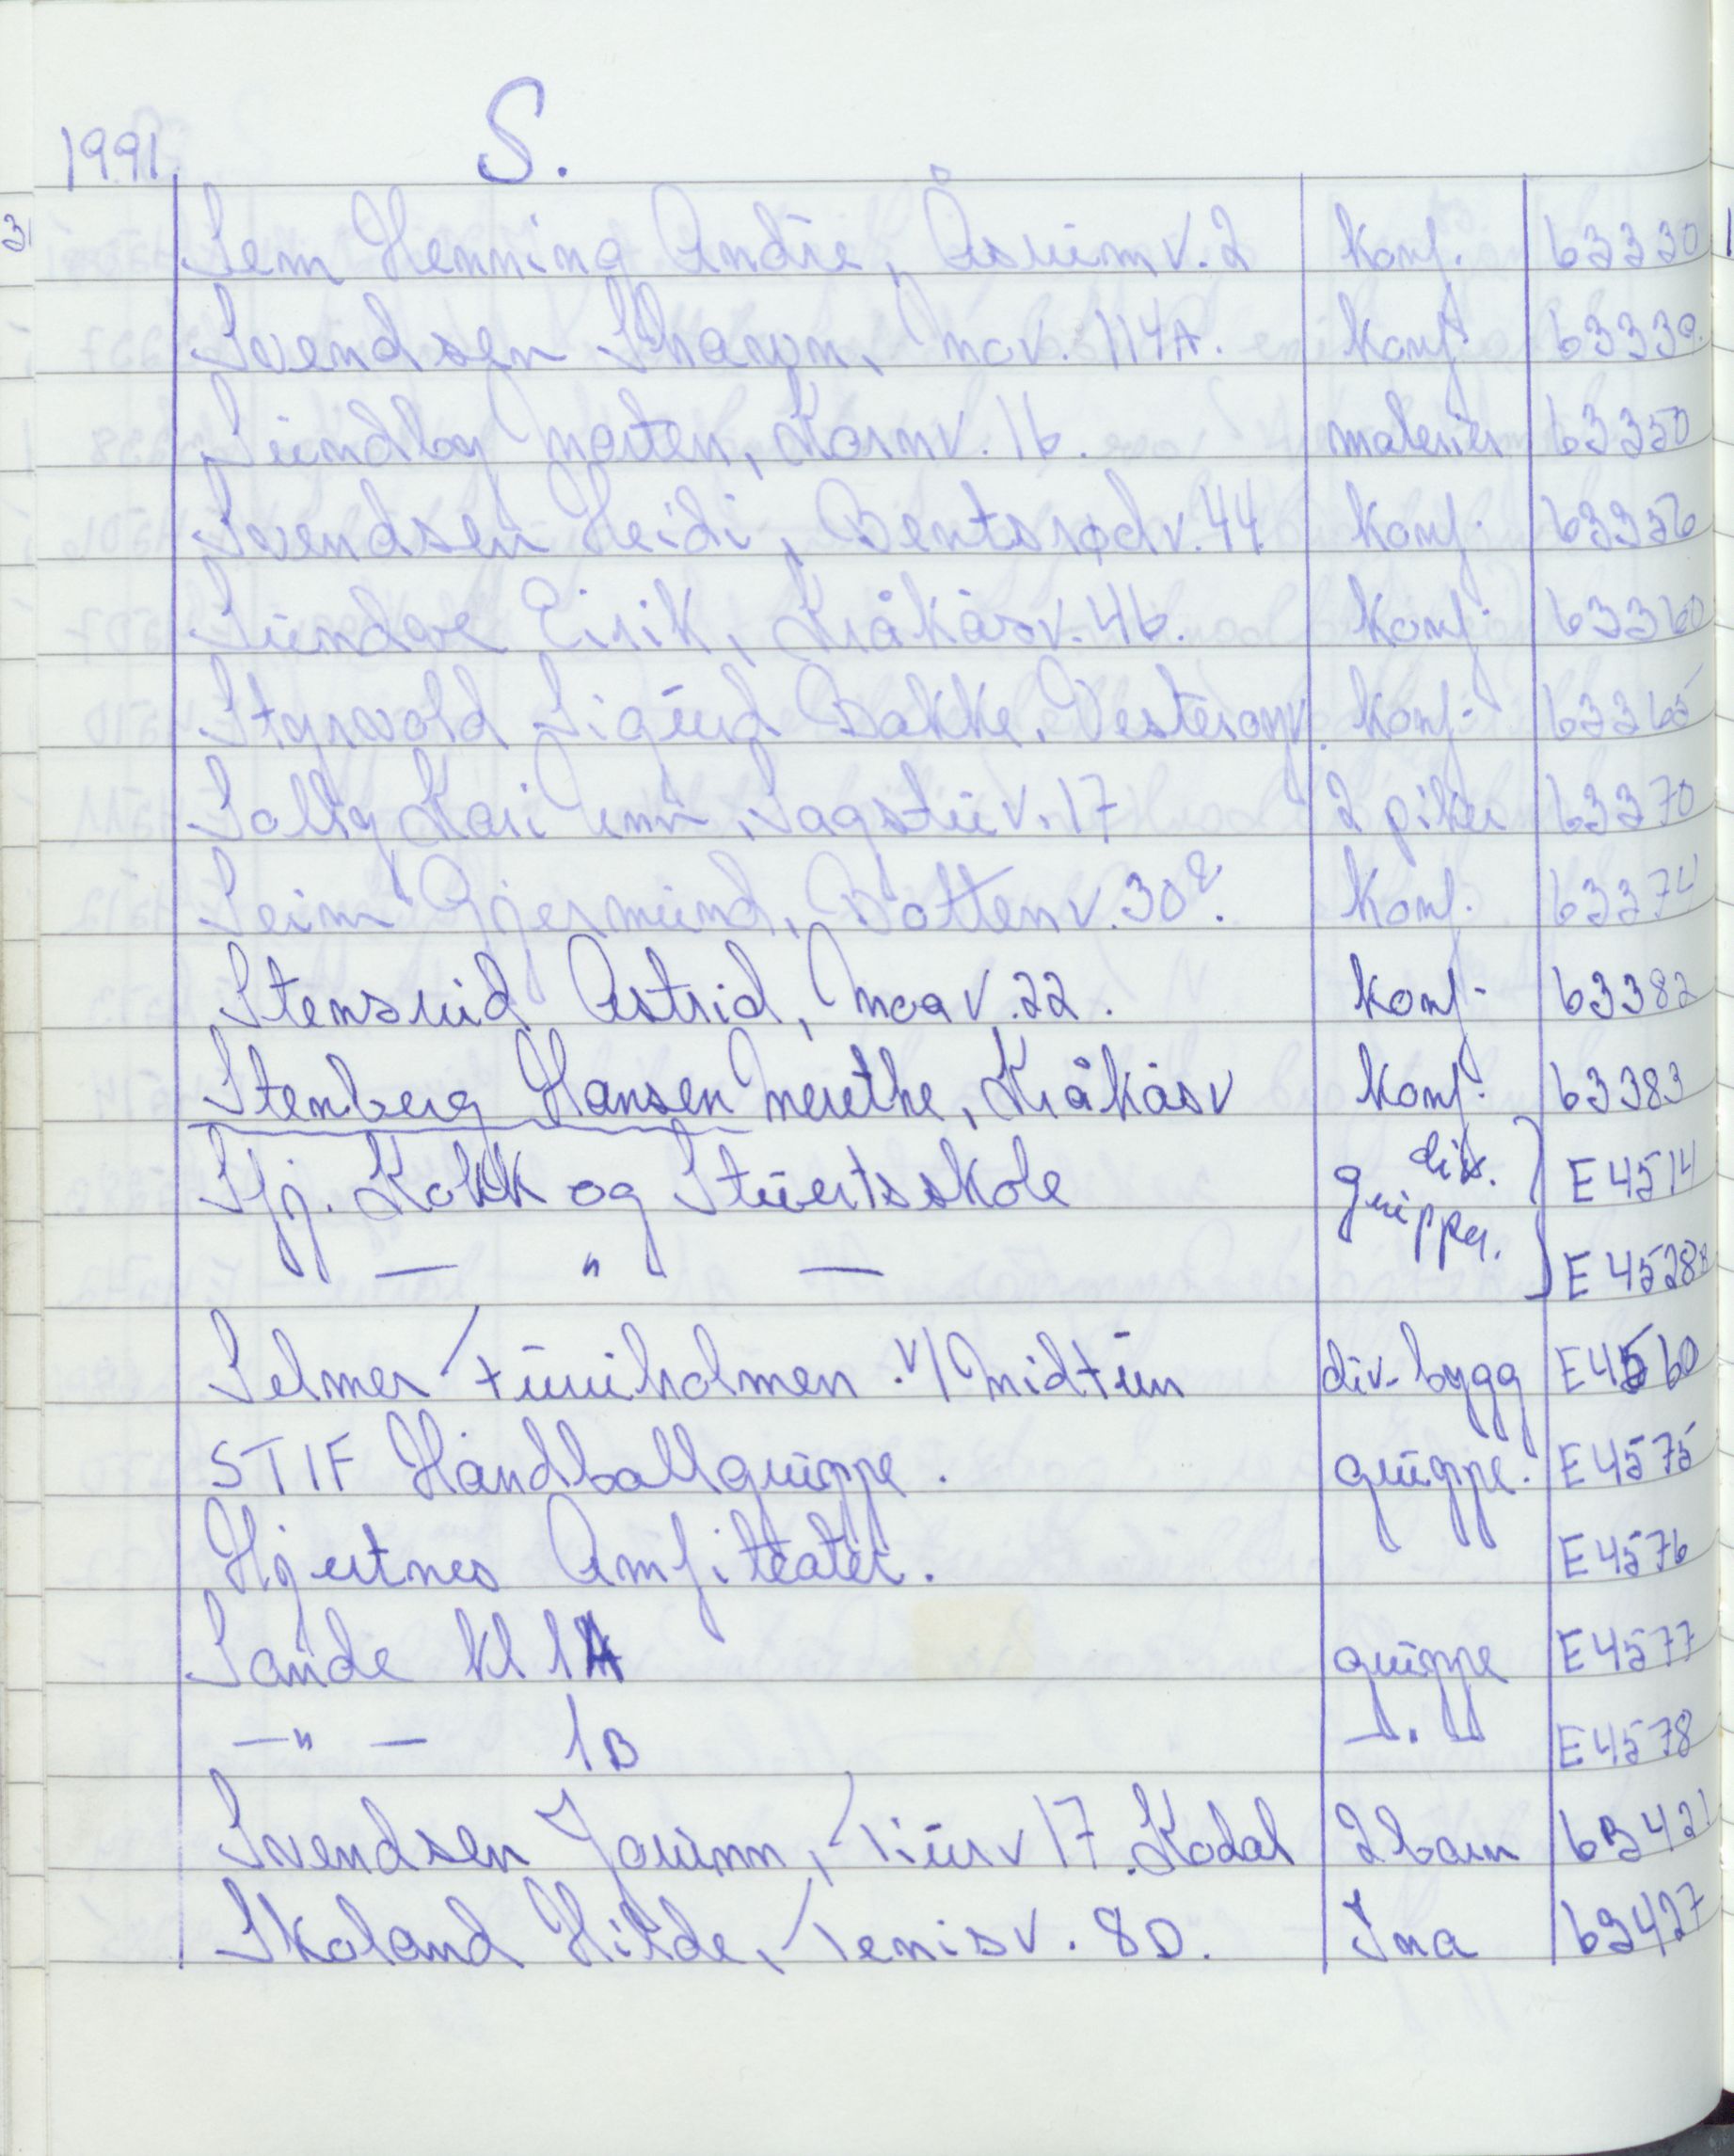 1991. S.
Sem Henning Andre, Åsrumv. 2 Konf. 63330
Svendsen Sharon, Mov. 114A. Konf. 63330.
Sundby Morten, Kornv. 16. malerier 63350
Svendsen Heidi, Bentsrødv. 44 Konf. 63356
Eirik, Kråkåsv. 46. Konf. 63360
Styrvold Sigurd Bakke, Vesterøyv. Konf. 63365
Kari Unni, Sagstuv. 17 2 piker 63370
Seim Gjermund, v. 30 Konf. 63374
Stensrud Astrid, Moav. 22. Konf. 63382
Stenberg Hansen Merethe, Kråkåsv Konf. 63383
Sfj. Kokk og Stuertsskole div. grupper. E4514
— " — E4528A
Selmer Furuholmen v/ Midttun div. bygg E4560
STIF Håndballgruppe. gruppe. E4575
Hjertnes Amfiteater. E4576
Sande Kl 1A gruppe E4577
— " — 1B — " — E4578
Svendsen Jorunn, 17 Kodal 2 barn 63421
Skoland Hilde, Tenisv. 8D. Ina 63427